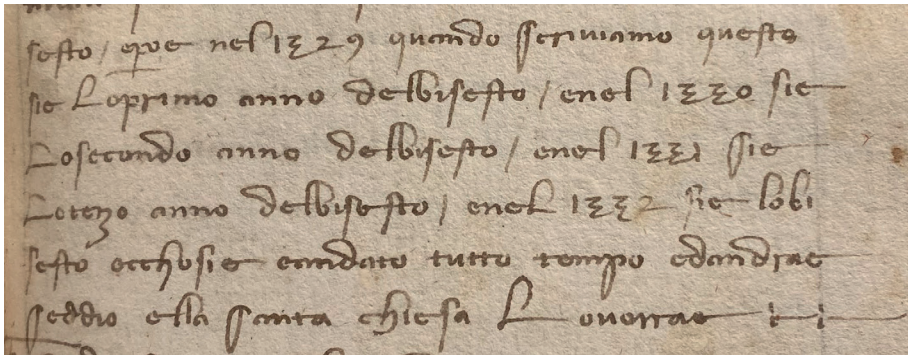 sesto / epoe nel 1329 quando sscriviamo questo
sie Loprimo anno delbisesto / enel 1330 sie
Losecondo anno delbisesto / enel 1331 sie
Loterzo anno delbisesto / enel 1332 sie lobi
sesto ecchosie eandato tutto tempo edandrae
seddio ella santa chiesa L ouorrae